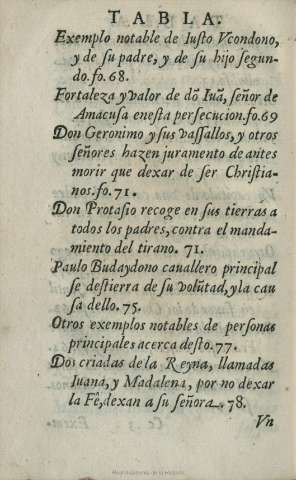 TABLA.
Exemplo notable de Iusto Vcondono,
y de su padre, y de su hijo segun-
do.fo.68.
Fortaleza y valor de dõ Iuã, señor de
Amacusa enesta persecucion.fo.69
Don Geronimo y sus vassallos, y otros
señores hazen juramento de antes
morir que dexar de ser Christia-
nos.fo.71.
Don Protasio recoge en sus tierras a
todos los padres, contra el manda-
miento del tirano. 71.
Paulo Budaydono cauallero principal
se destierra de su volũtad, y la cau
sa dello. 75.
Otros exemplos notables de personas
principales acerca desto. 77.
Dos criadas de la Reyna, llamadas
Iuana, y Madalena, por no dexar
la Fê, dexan a su señora. 78.
Vn